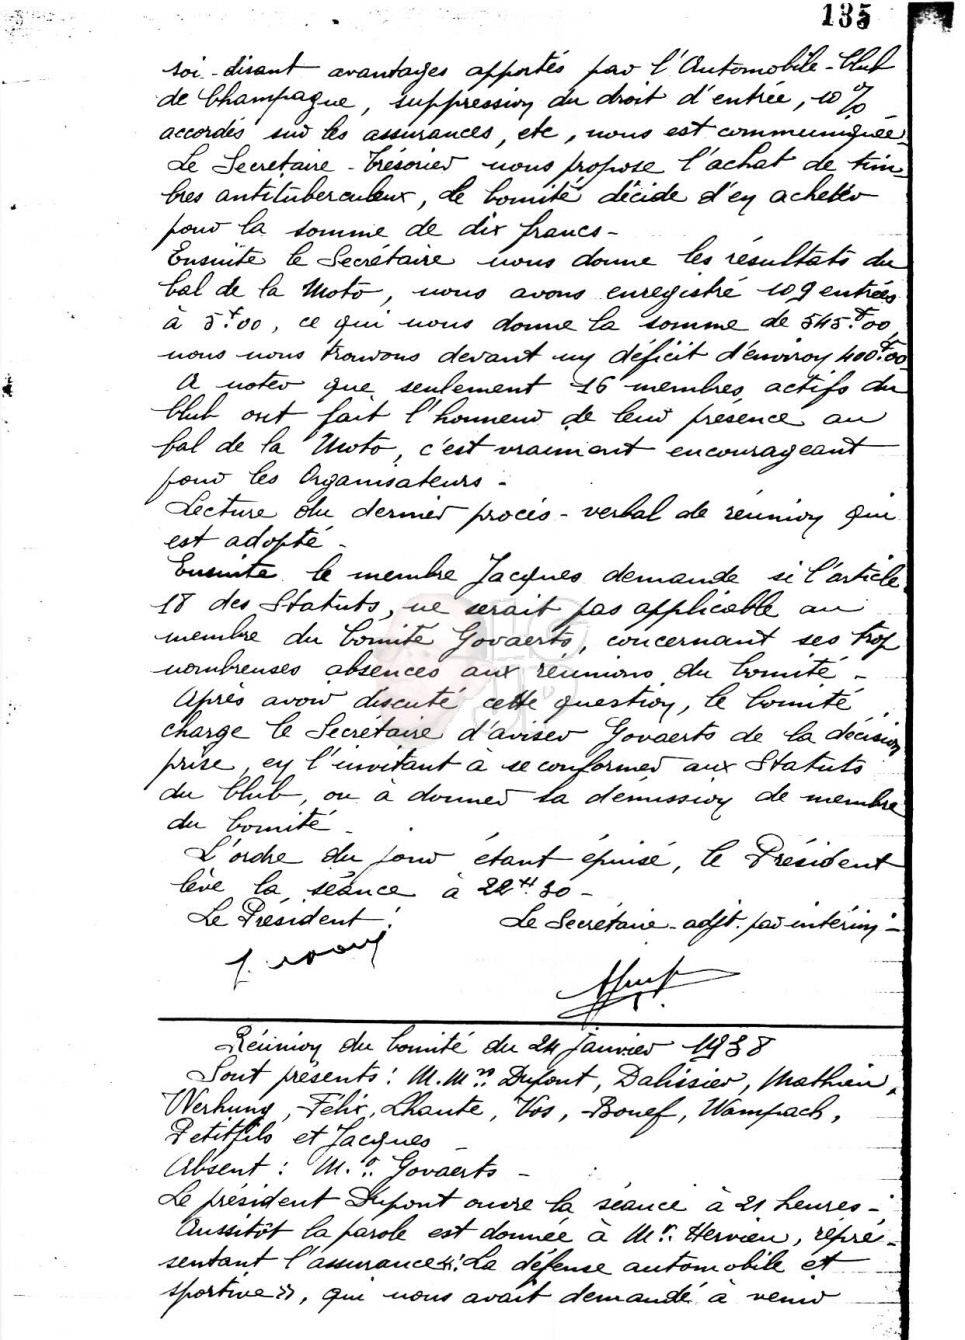 135
soi-disant avantages apportés par l'Automobile-Club
de Champagne, suppression du droit d'entrée, 10%
accordés sur les assurances, etc, nous est communiquée.
Le Secrétaire-Trésorier nous propose l'achat de tim-
bres antituberculeux, le Comité décide d'en acheter
pour la somme de dix francs-
Ensuite le Secrétaire nous donne les résultats du
bal de la Moto, nous avons enregistré 109 entrées
à 5f00, ce qui nous donne la somme de 545f00,
nous nous trouvons devant un déficit d'environ 400f00-
A noter que seulement 16 membres actifs du
Club ont fait l'honneur de leur présence au
bal de la Moto, c'est vraiment encourageant
pour les Organisateurs-
Lecture du dernier procès-verbal de réunion qui
est adopté-
Ensuite le membre Jacques demande si l'article
18 des Statuts, ne serait pas applicable au
membre du Comité Govaerts, concernant ses trop
nombreuses absences aux réunions du Comité-
Après avoir discuté cette question, le Comité
charge le Secrétaire d'aviser Govaerts de la décision
prise, en l'invitant à se conformer aux Statuts
du Club, ou à donner sa démission de membre
du Comité-
L'ordre du jour étant épuisé, le Président
lève la séance à 22H30-
Le Président: Le Secrétaire-adjt. par intérim:-
Réunion du Comité du 24 Janvier 1938
Sont présents: M.Mrs Dupont, Dalissier, Mathieu,
Werhung, Félix, Lhaute, Vos, Bouef, Wampach,
Petitfils et Jacques
Absent: M.r. Govaerts-
Le président Dupont ouvre la séance à 21 heures-
Aussitôt la parole est donnée à Mr. Hervieu, repré-
sentant l'assurance «La défense automobile et
sportive», qui nous avait demandé à venir